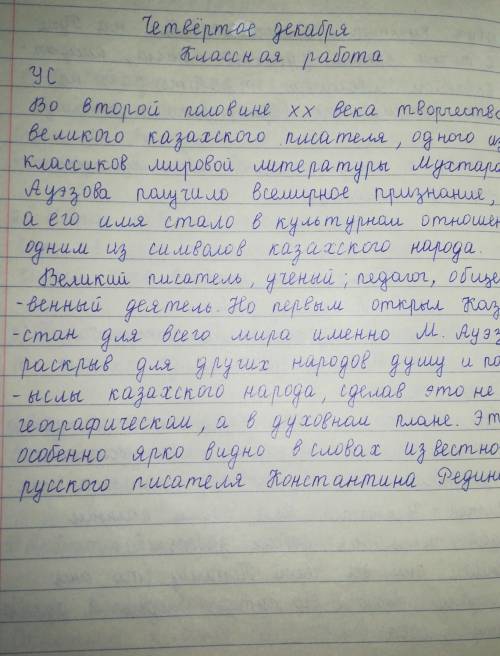 Четвёртое декабря
Классная работа
УС
Во второй половине XX века творчество
великого казахского писателя, одного из
классиков мировой литературы Мухтара
Ауэзова получило всемирное признание,
а его имя стало в культурном отношен
одним из символов казахского народа.
Великий писатель, ученый; педагог, обще
-венный деятель. Но первым открыл Каз
-стан для всего мира именно М. Ауэз
раскрыв для других народов душу и по
-ыслы казахского народа, сделав это не
географическом, а в духовном плане. Эт
особенно ярко видно в словах известно
русского писателя Константина Редин